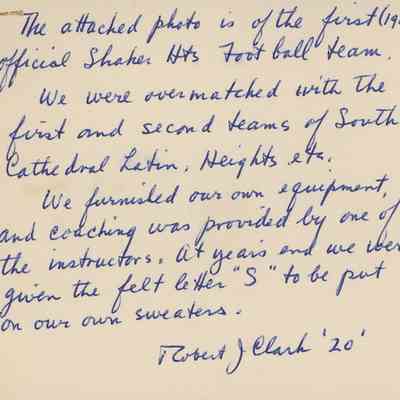 The attached photo is of the first (19
official Shaker Hts Foot ball team.
We were overmatched with the
first and second teams of South
Cathedral Latin, Heights etc.
We furnished our own equipment,
and coaching was provided by one of
the instructors. At years end we were
given the felt letter "S" to be put
on our own sweaters.
Robert J Clark '20'